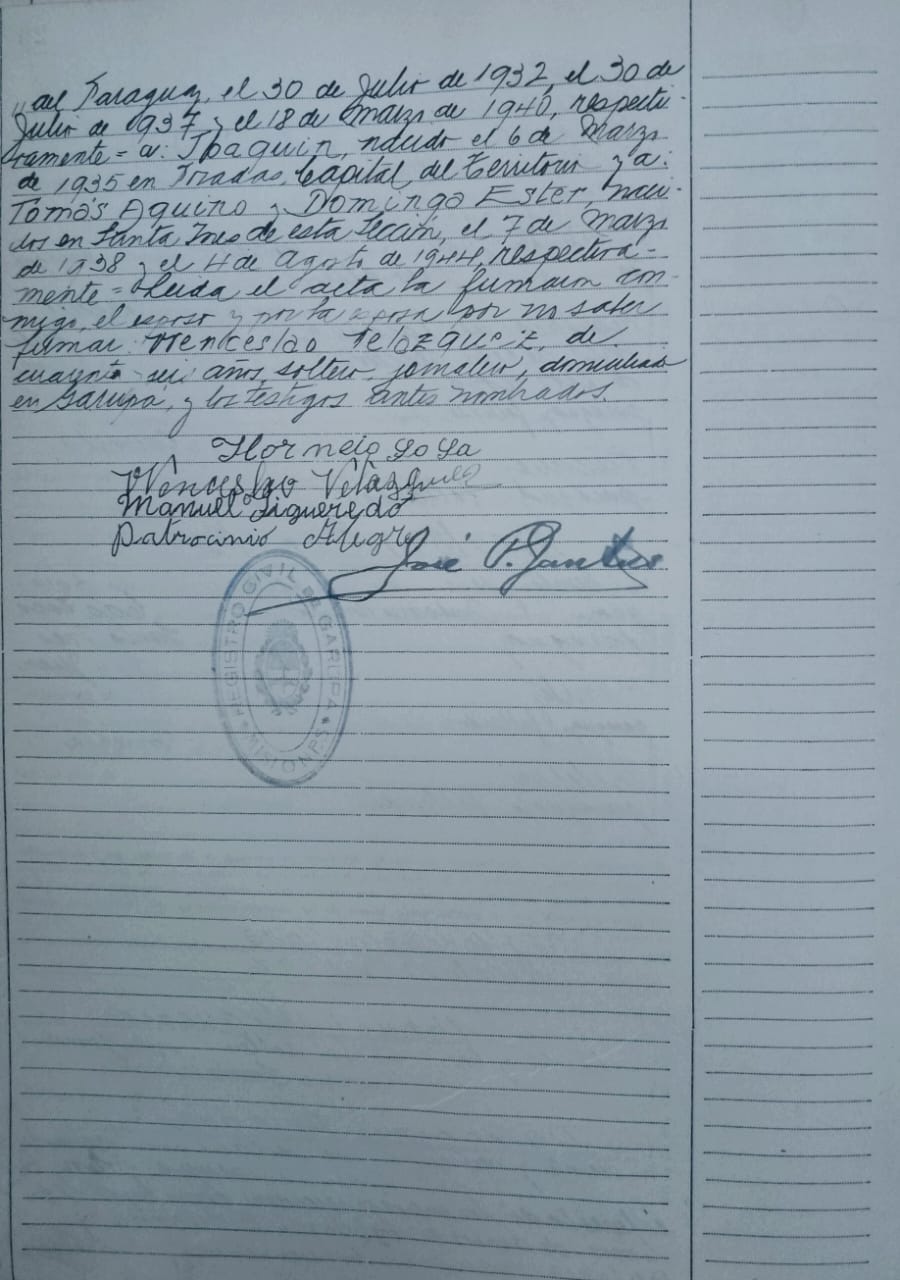 „ del Paraguay, el 30 de Julio de 1932, el 30 de
Julio de 1937 y el 18 de Marzo de 1940, respecti-
vamente = a: Joaquin, nacido el 6 de Marzo
de 1935 en Posadas, Capital del Territorio y a:
Tomás Aquino y Domingo Ester, naci-
dos en Santa Ines de esta Sección, el 7 de Marzo
de 1938 y el 4 de Agosto de 1944, respectiva-
mente = Leida el acta la firmaron con-
migo, el esposo y por la esposa por no saber
firmar Wenceslao Velazquez, de
cuarenta seis años, soltero, jornalero, domiciliado
en Garupá, y los testigos antes nombrados.
Wenceslao Velázquez
Manuel Figueredo
Patrocinio Alegre
José P.
REGISTRO CIVIL DE GARUPA
MISIONES